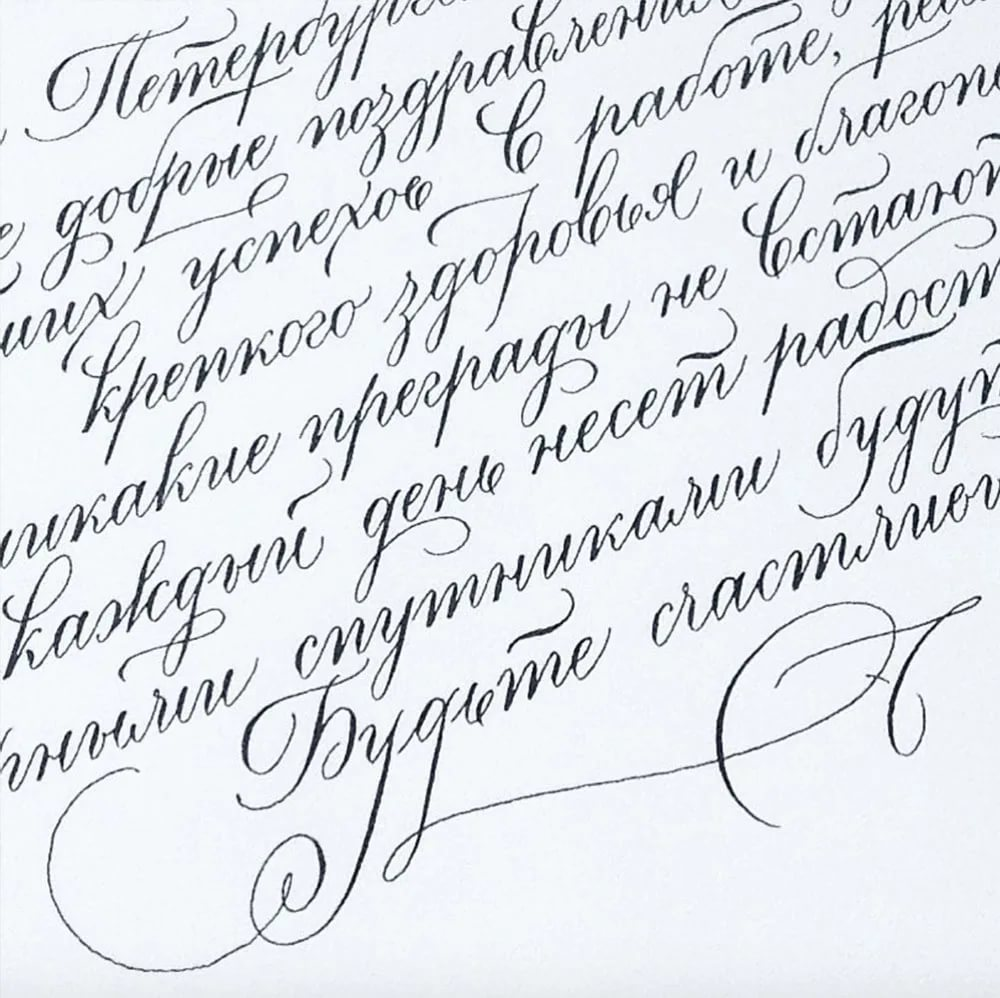 Петербург
добрые поздравления
ших успехов в работе,
крепкого здоровья и благопо
никакие преграды не встают
каждый день несет радост
ными спутниками будут
Будьте счастливы